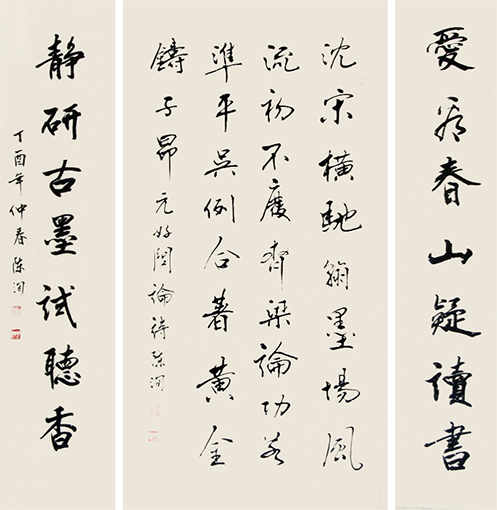 愛看春山疑讀書
沈宋橫馳翰墨場風
流初不廢齊梁論功若
準平吳例合著黃金
鑄子昂 元好問論詩 陳
静研古墨試聽香
丁酉年仲春 陳